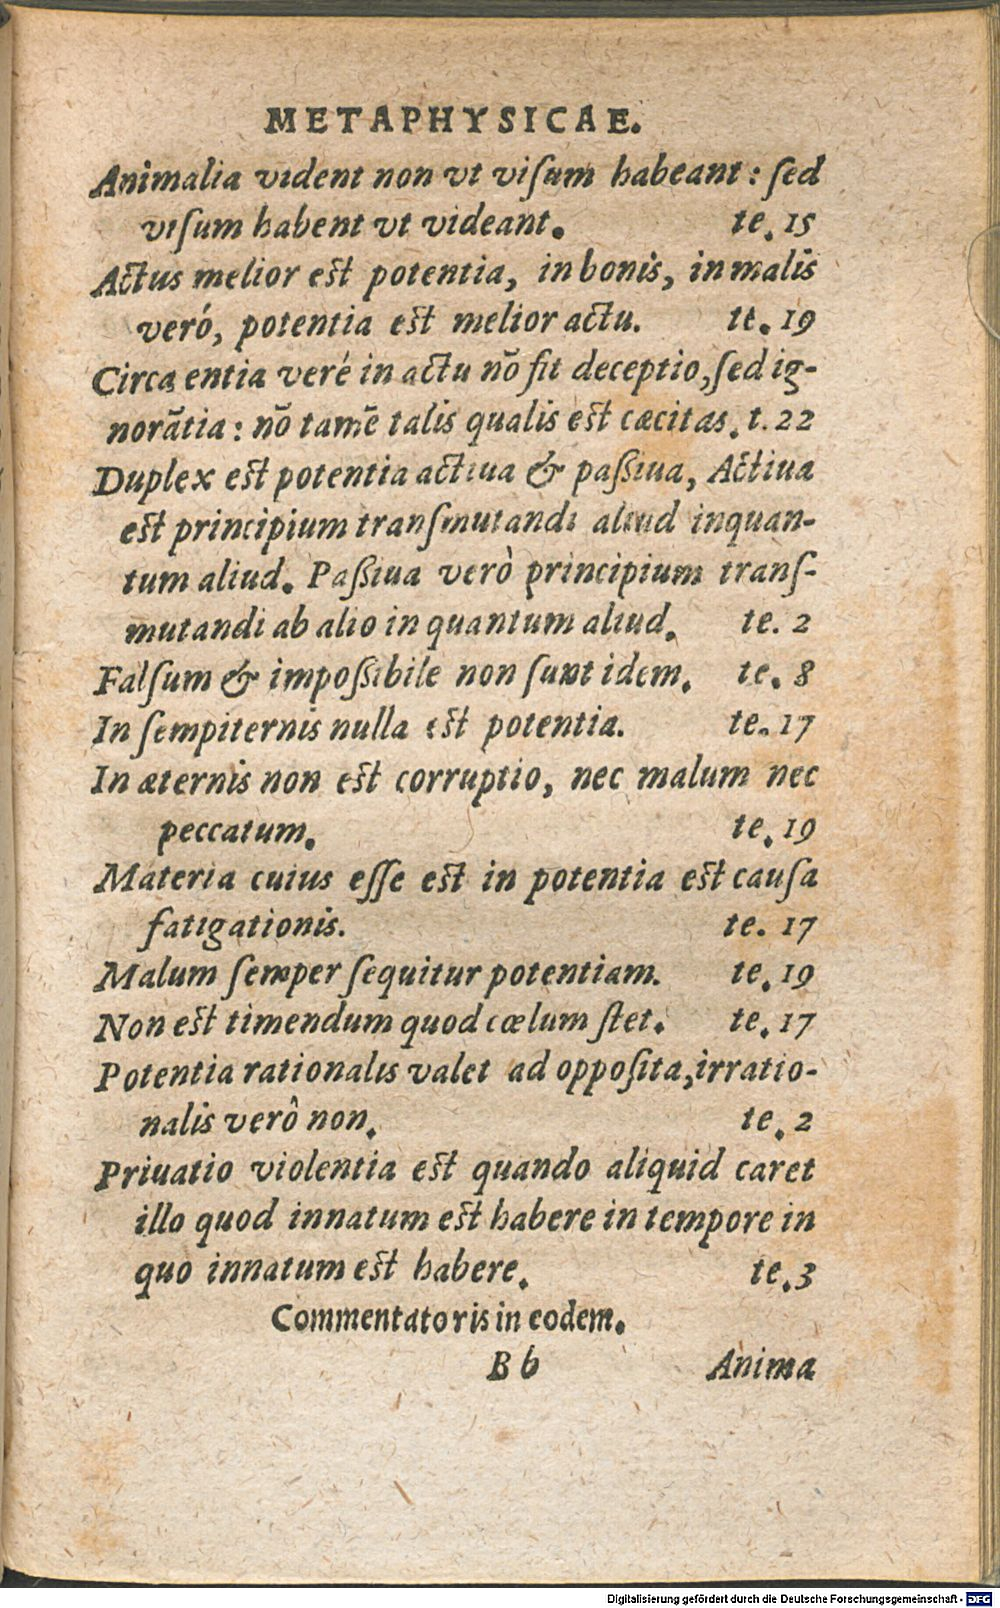 METAPHYSICAE.
Animalia vident non vt viſum habeant: ſed
viſum habent vt videant. te. 15
Actus melior est potentia, in bonis, in malis
veró, potentia est melior actu. te. 19
Circa entia veré in actu nō fit deceptio, ſed ig-
norātia: nō tamē talis qualis est cæcitas. t. 22
Duplex est potentia actiua & paſſiua, Actiua
est principium tranſmutandi aliud inquan-
tum aliud. Paſſiua verò principium tranſ-
mutandi ab alio in quantum aliud. te. 2
Falſum & impoſſibile non ſunt idem. te. 8
In ſempiternis nulla est potentia. te. 17
In æternis non est corruptio, nec malum nec
peccatum. te. 19
Materia cuius eſſe est in potentia est cauſa
fatigationis. te. 17
Malum ſemper ſequitur potentiam. te. 19
Non est timendum quod cœlum ſtet. te. 17
Potentia rationalis valet ad oppoſita, irratio-
nalis verô non. te. 2
Priuatio violentia est quando aliquid caret
illo quod innatum est habere in tempore in
quo innatum est habere. te. 3
Commentatoris in eodem.
B b Anima
Digitalisierung gefördert durch die Deutsche Forschungsgemeinschaft - DFG